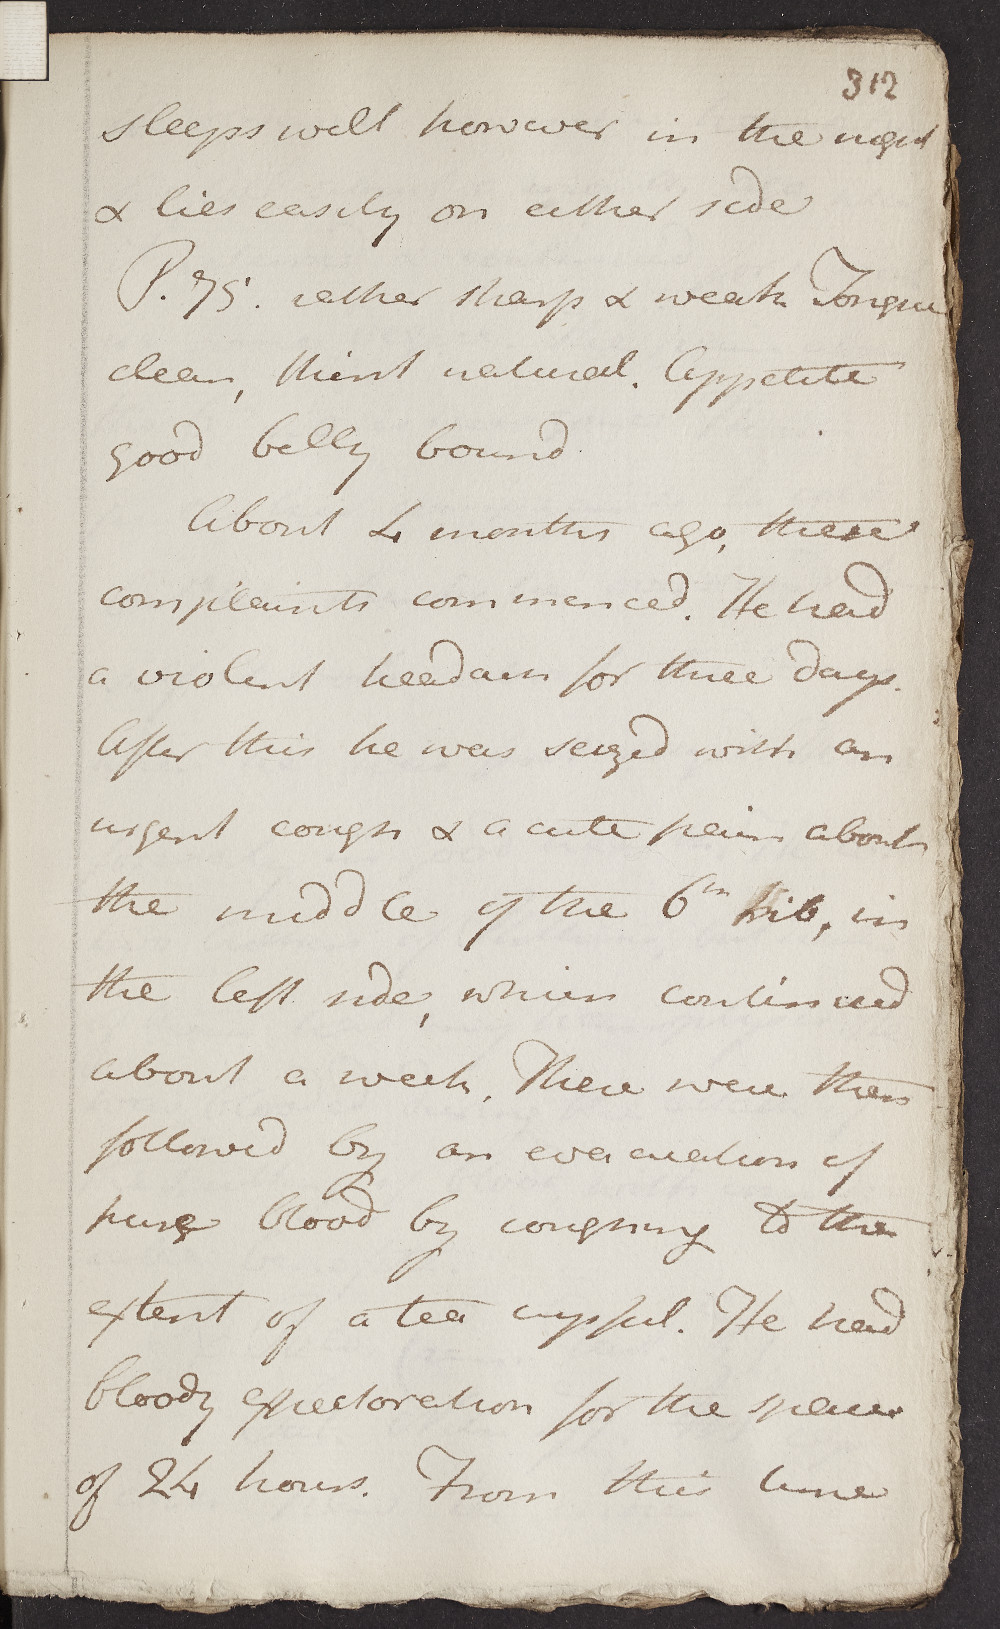 312
sleeps well however in the night
& lies easily on either side
P. 75. rather sharp & weak Tongue
clean, thirst natural. Appetite
good belly bound
About 4 months ago, these
complaints commenced. He had
a violent headach for three days.
After this he was seized with an
urgent cough & acute pain about
the middle of the 6th rib, in
the left side, which continued
about a week. These were then
followed by an evacuation of
pure blood by coughing to the
extent of a tea cupful. He had
bloody expectoration for the space
of 24 hours. From this time